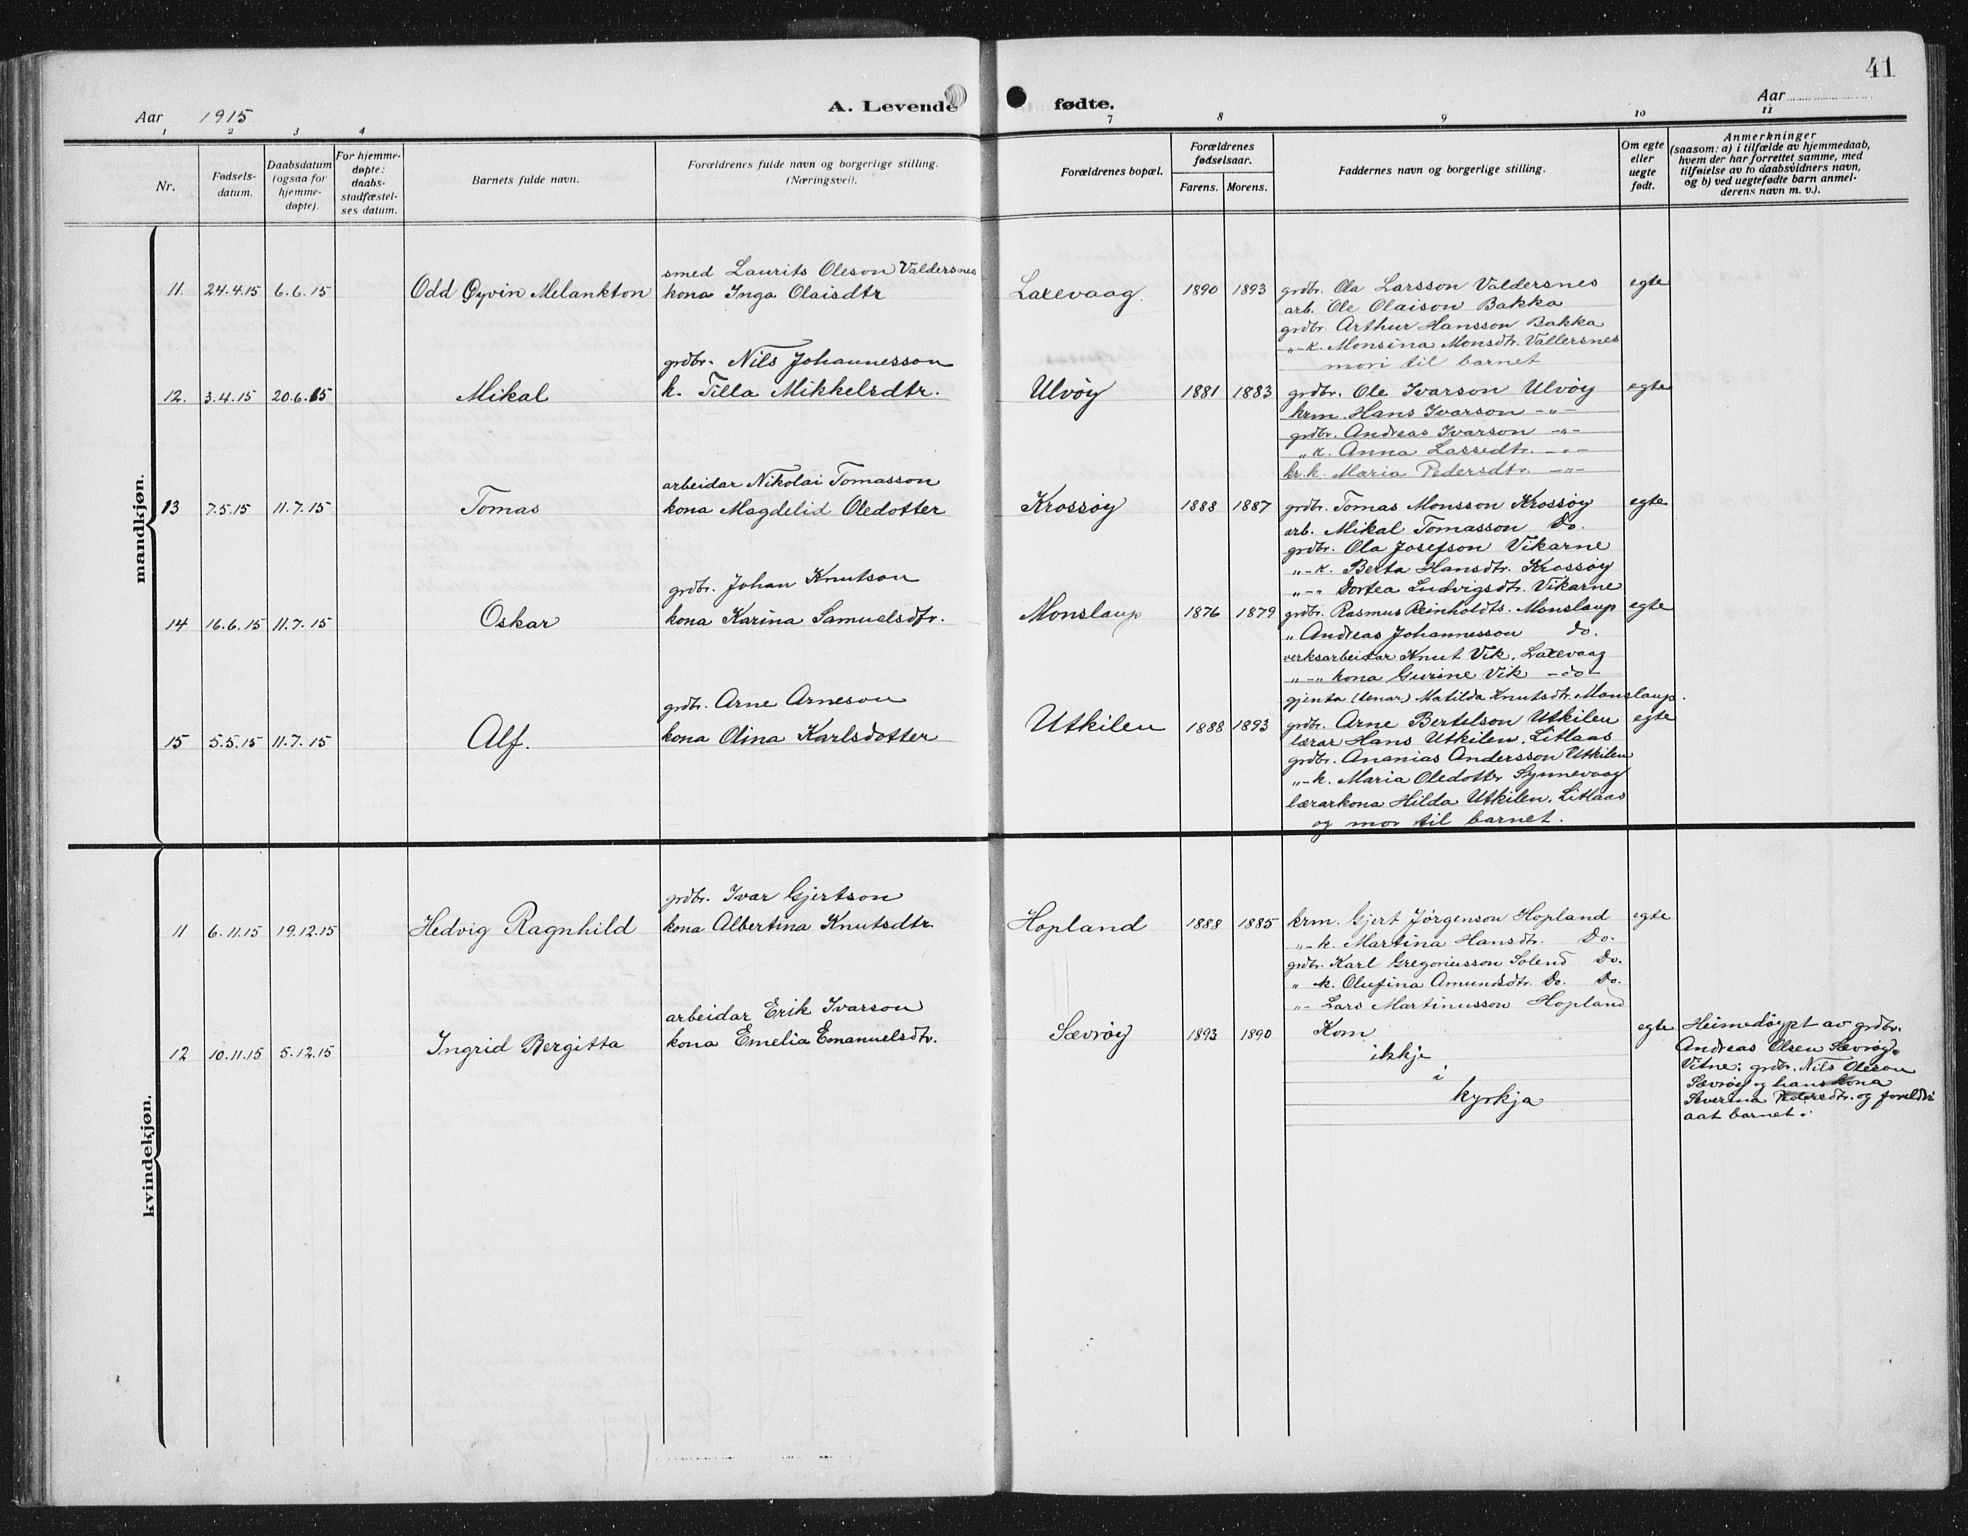 41
Aar 1915
A. Levende fødte.
Aar
1 2 3 4 7 8 9 10 11
Nr.
Fødsels-
datum.
Daabsdatum
(ogsaa for
hjemme-
døpte).
For hjemme-
døpte:
daabs-
stadfæstel-
ses datum.
Barnets fulde navn.
Forældrenes fulde navn og borgerlige stilling.
(Næringsvei).
Forældrenes bopæl.
Forældrenes
fødselsaar.
Farens. Morens.
Faddernes navn og borgerlige stilling.
Om egte
eller
uegte
født.
Anmerkninger
(saasom: a) i tilfælde av hjemmedaab,
hvem der har forrettet samme, med
tilføielse av to daabsvidners navn,
og b) ved uegtefødte barn anmel-
derens navn m. v.).
mandkjøn.
11. 24.4.15 6.6.15 Odd Øyvin Melankton
smed Laurits Oleson Valdersnes
kona Inga Olaisdtr
Laxevaag. 1890 1893
grdbr. Ola Larsson Valdersnes
arb. Ole Olaison Bakka
grdbr. Arthur Hansson Bakka
„-k. Monsina Monsdtr. Vallersnes
mori til barnet
egte
12. 3.4.15 20.6.15 Mikal
grdbr. Nils Johannesson
k. Tilla Mikkelsdtr.
Ulvøy 1881 1883
grdbr. Ole Ivarson Ulvøy
krm. Hans Ivarson -„-
grdbr. Andreas Ivarson -„-
„k. Anna Lassedtr. -„-
kr.k. Maria Pedersdtr. -„-
egte
13 7.5.15 11.7.15 Tomas
arbeidar Nikolai Tomasson
kona Magdelid Oledotter
Krossøy 1888 1887
grdbr. Tomas Monsson Krossøy
arb. Mikal Tomasson Do.
grdbr. Ola Josefson Vikarne
„-k. Berta Hansdtr. Krossøy
„-„ Dortea Ludvigsdtr. Vikarne
egte
14 16.6.15 11.7.15 Oskar
grdbr. Johan Knutson
kona Karina Samuelsdtr.
Monslaup 1876 1879
grdbr. Rasmus Reinholdts. Monslaup
„ Andreas Johannesson do.
verksarbeidar Knut Vik, Laxevaag
„-„ kona Gurine Vik -do-
gjenta (tenar) Matilda Knutsdtr. Monslaup.
egte
15 5.5.15 11.7.15 Alf.
grdbr. Arne Arneson
kona Olina Karlsdotter
Utkilen 1888 1893
grdbr. Arne Bertelson Utkilen
lærar Hans Utkilen, Litlaas
grdbr. Ananias Andersson Utkilen
„-k. Maria Oledotter Synnevaag
lærarkona Hilda Utkilen, Litlaas
og mor til barnet.
egte
kvindekjøn.
11 6.11.15 19.12.15 Hedvig Ragnhild
grdbr. Ivar Gjertson
kona Albertina Knutsdtr.
Hopland 1888 1885
krm. Gjert Jørgenson Hopland
„-k. Martina Hansdtr. Do.
grdbr. Karl Gregoriusson Solend Do.
„ k. Olufina Amundsdtr. Do. Do.
„- Lars Martinusson Hopland
egte
12 10.11.15 5.12.15 Ingrid Bergitta
arbeidar Erik Ivarson
kona Emelia Emanuelsdtr.
Sævrøy 1893 1890
Kom
ikkje
i
kyrkja
egte
Heimedøypt av grdbr.
Andreas Olsen Sævrøy.
Vitne: grdbr. Nils Oleson
Sævrøy og hans kona
Severina Pedersdtr. og foreldri
aat barnet.